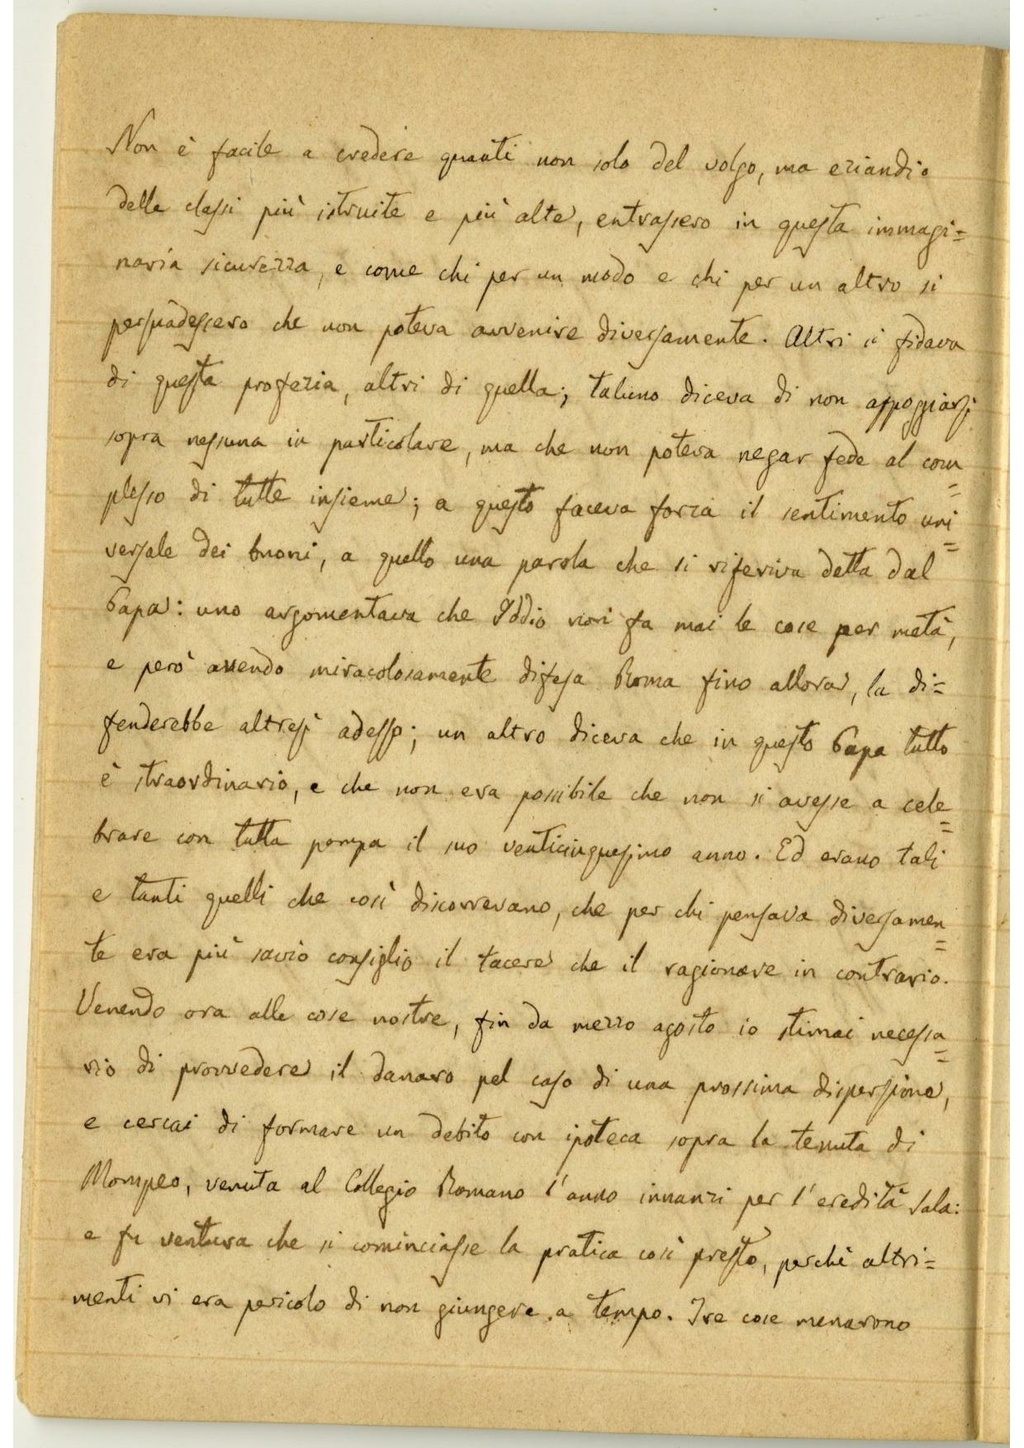 Non è facile a credere quanti non solo del volgo, ma eziandio
delle classi più istruite e più alte, entrassero in questa immagi=
naria sicurezza, e come chi per un modo e chi per un altro si
persuadessero che non poteva avvenire diversamente. Altri si fidava
di questa profezia, altri di quella; taluno diceva di non appoggiarsi
sopra nessuna in particolare, ma che non poteva negar fede al com=
plesso di tutte insieme; a questo faceva forza il sentimento uni=
versale dei buoni, a quello una parola che si riferiva detta dal
Papa: uno argomentava che Iddio non fa mai le cose per metà,
e però avendo miracolosamente difesa Roma fino allora, la di=
fenderebbe altresì adesso; un altro diceva che in questo Papa tutto
è straordinario, e che non era possibile che non si avesse a cele=
brare con tutta pompa il suo venticinquesimo anno. Ed erano tali
e tanti quelli che così discorrevano, che per chi pensava diversamen=
te era più savio consiglio il tacere che il ragionare in contrario.
Venendo ora alle cose nostre, fin da mezzo agosto io stimai necessa=
rio di provvedere il danaro pel caso di una prossima dispersione,
e cercai di formare un debito con ipoteca sopra la tenuta di
Mompeo, venuta al Collegio Romano l'anno innanzi per l'eredità Sala:
e fu ventura che si cominciasse la pratica così presto, perchè altri=
menti vi era pericolo di non giungere a tempo. Tre cose menarono